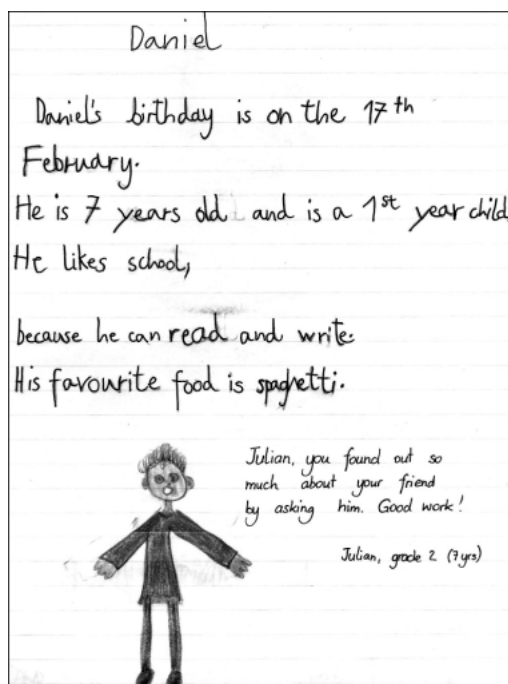 Daniel
Daniel's birthday is on the 17th
February.
He is 7 years old and is a 1st year child
He likes school,
because he can read and write.
His favourite food is spaghetti.
Julian, you found out so
much about your friend
by asking him. Good work!
Julian, grade 2 (7 yrs)